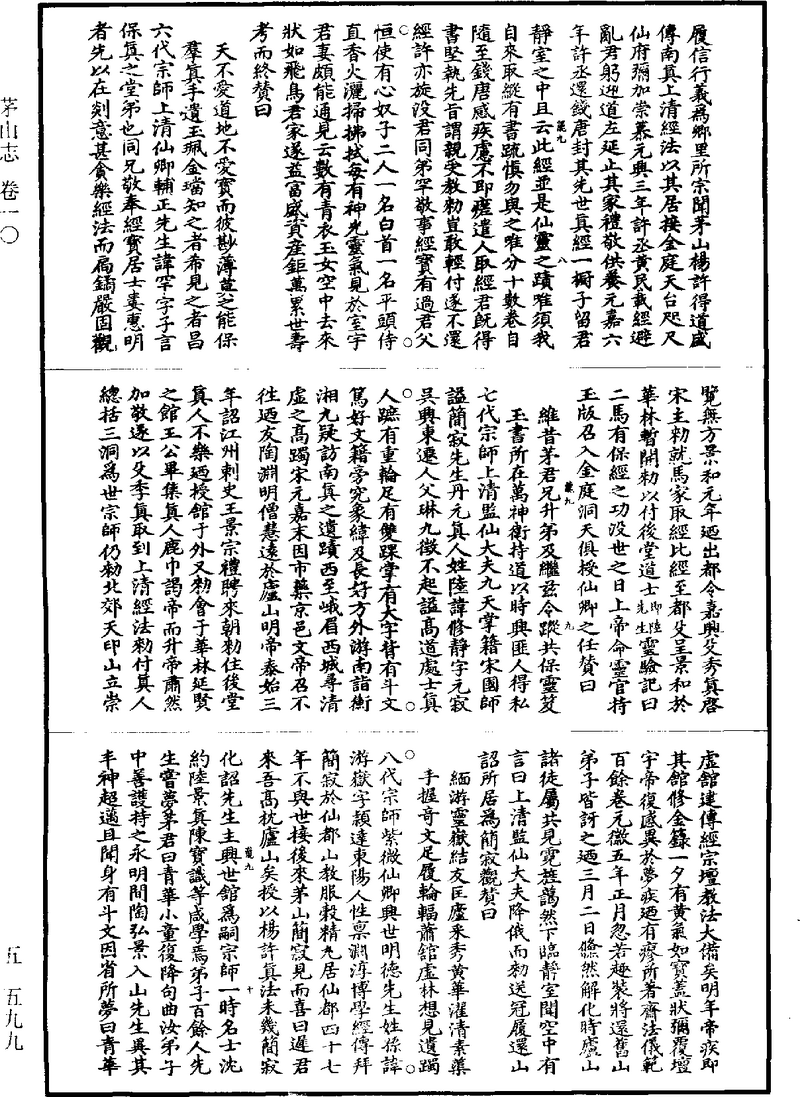 茅山志 卷一〇
履信行義為鄉里所宗聞茅山楊許得道盛
傳南真上清經法以其居接金庭天台咫尺
仙府彌加崇慕元興三年許丞黃民載經避
亂君躬迎道左延止其家禮敬供養元嘉六
年許丞還錢唐封其先世真經一櫥子留君
龍九 八
靜室之中且云此經並是仙靈之蹟唯須我
自來取縱有書疏慎勿與之唯分十數卷自
隨至錢唐感疾慮不即瘥遣人取經君既得
書堅執先旨謂親受教勑豈敢輕付遂不還
經許亦旋沒君同弟罕敬事經寶有過君父
恒使有心奴子二人一名白首一名平頭侍
直香火灑掃拂拭每有神光靈氣見於室宇
君妻頗能通見云數有青衣玉女空中去來
狀如飛鳥君家遂益富盛資產鉅萬累世壽
考而終贊曰
天不愛道地不愛寶而彼尠薄莫之能保
羣真手遺玉珮金璫知之者希見之者昌
六代宗師上清仙卿輔正先生諱罕字子言
保真之堂弟也同兄敬奉經寶居士婁惠明
者先以在剡意甚貪樂經法而扃鐍嚴固觀
覽無方景和元年迺出都令嘉興殳季真啓
宋主勑就馬家取經比經至都殳呈景和於
華林暫開勑以付後堂道士即陸先生靈驗記曰
二馬有保經之功沒世之日上帝命靈官持
玉版召入金庭洞天俱授仙卿之任贊曰
龍九 九
維昔茅君兄升弟及繼茲令蹤共保靈笈
玉書所在萬神衛持道以時興匪人得私
七代宗師上清監仙大夫九天掌籍宋國師
謚簡寂先生丹元真人姓陸諱修靜字元寂
吳興東遷人父琳九徵不起謚高道處士真
人蹠有重輪足有雙踝掌有大字背有斗文
篤好文籍旁究象緯及長好方外游南詣衡
湘九疑訪南真之遺蹟西至峨眉西城尋清
虛之高躅宋元嘉末因市藥京邑文帝召不
往迺友陶淵明僧慧遠於廬山明帝泰始三
年詔江州刺史王景宗禮聘來朝勑住後堂
真人不樂迺授館于外又勑會于華林延賢
之館王公畢集真人鹿巾謁帝而升帝肅然
加敬遂以殳季真取到上清經法勑付真人
總括三洞為世宗師仍勑北郊天印山立崇
虛館建傳經宗壇教法大備矣明年帝疾即
其館修金籙一夕有黃氣如寶蓋狀彌覆壇
宇帝復感異於夢疾迺有瘳所著齋法儀範
百餘卷元徽五年正月忽若趣裝將還舊山
弟子皆訝之迺三月二日儵然解化時廬山
諸徒屬共見霓旌藹然下臨靜室聞空中有
言曰上清監仙大夫降俄而勑送冠履還山
詔所居為簡寂觀贊曰
緬游靈嶽結友匡廬釆秀黃華濯清素蕖
手握奇文足履輪輻蕭館虛林想見遺躅
八代宗師紫微仙卿興世明德先生姓孫諱
游嶽字穎達東陽人性稟淵淳博學經傳拜
簡寂於仙都山教服穀精九居仙都四十七
年不與世接後來茅山簡寂見而喜曰遲君
來吾高枕廬山矣授以楊許真法未幾簡寂
龍九 十
化詔先生主興世館為嗣宗師一時名士沈
約陸景真陳寶識等咸學焉弟子百餘人先
生嘗夢茅君曰青華小童復降句曲汝弟子
中善護持之永明間陶弘景入山先生異其
丰神超邁且聞身有斗文因省所夢曰青華
五 五九九